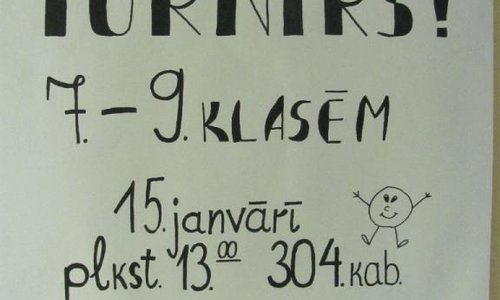 TURNĪRS!
7.-9. KLASĒM
15. janvārī
plkst. 13.00 304. kab.